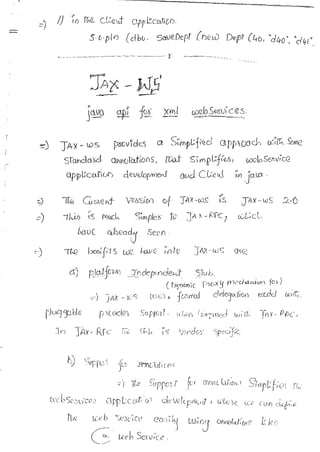 =) // in the client application.
S.o.pln (dbu. saveDept (new Dept (40, "d40", "d41"
JAX - WS
java api for xml webservices
=) JAX-WS provides a Simplified approach with some
Standard annotations, that Simplifies webservice
application development and client in java.
=) The Current Version of JAX-WS is JAX-WS 2.0
=) This is Much Simpler to JAX-RPC, which
have already seen.
=) The benifits we have into JAX-WS are
a) platform Independent Stub.
(Dynamic proxy mechanism for)
=) JAX-WS uses, formal delegation model with,
pluggable provides Support. when compared with JAX-RPC.
In JAX-RPC the stub is vendor specific
b) Support for annotations
=) The Support for annotations Simplifies the
webservices application development, where we can define
the web service easily using annotations like
@ Web Service.